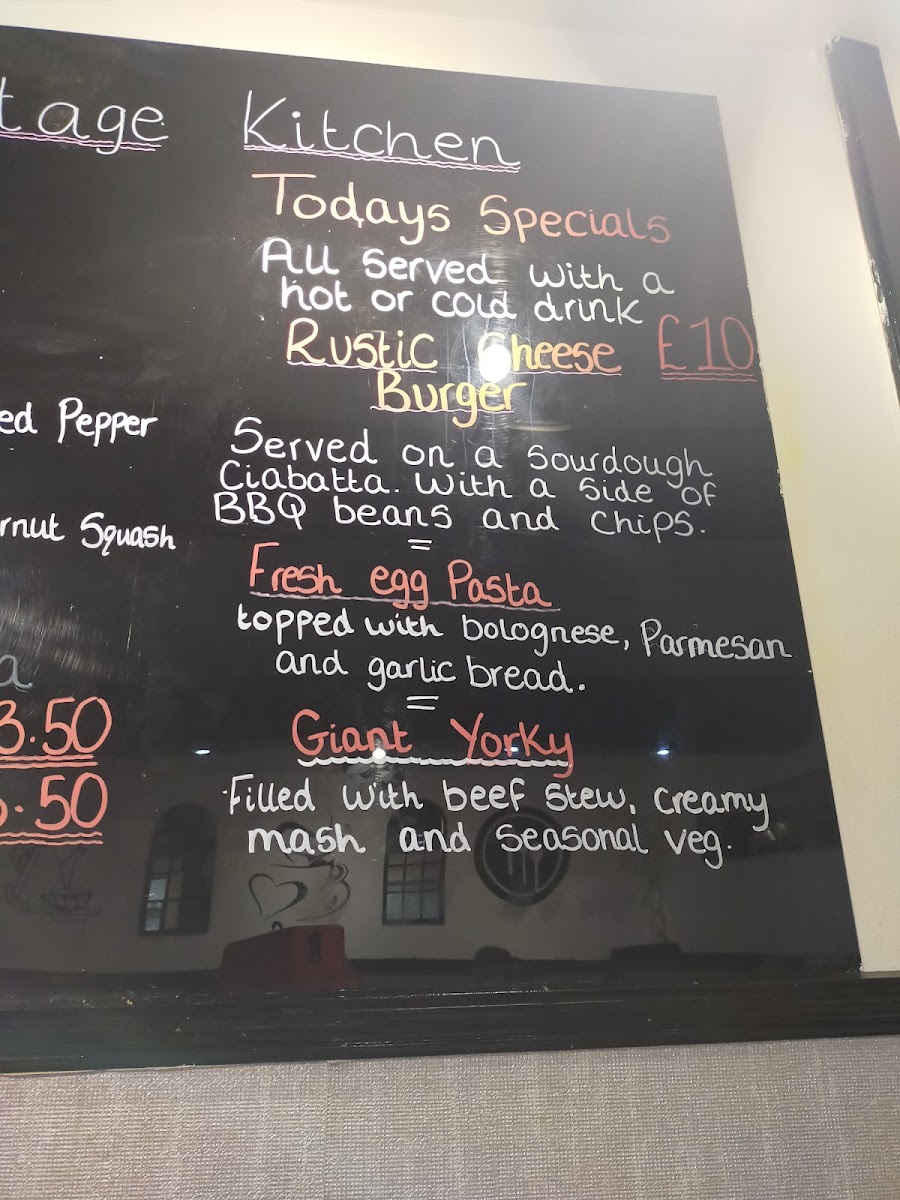 Kitchen
Todays Specials
All served with a
hot or cold drink
Rustic Cheese £10
Burger
Served on a sourdough
Ciabatta. With a side of
BBQ beans and chips.
=
Fresh egg Pasta
topped with bolognese, Parmesan
and garlic bread.
=
Giant Yorky
Filled with beef stew, creamy
mash and seasonal veg.
Pepper
Squash
.50
.50